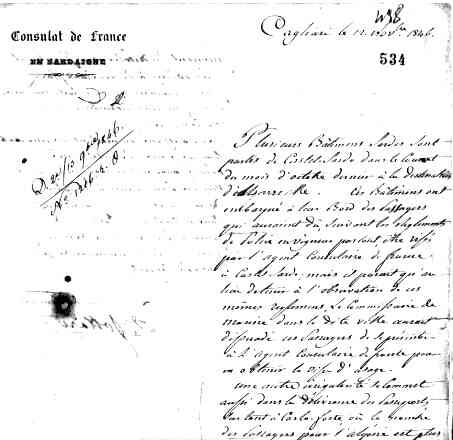 498
Consulat de France
EN SARDAIGNE
Cagliari le 12 Nov.bre 1846.
534
D. 20/10 9bre 1846.
No. 1846
Plusieurs Bâtimens Sardes sont
partis de Castel-Sardo dans le Courant
du mois d'octobre dernier à la destination
d' Ces Bâtimens ont
embarqué à leur Bord des passagers
qui auraient dû, suivant les règlements
de Police en vigueur partout être visés
par l'agent Consulaire de france
à Castel Sardo, mais il parait qu'au
lieu de tenir à l'observation de ces
mêmes reglement, Le Commissaire de
marine dans la dite ville aurait
dissuadé ces Passagers de se présenter
à l'Agent Consulaire de france pour
obtenir le visa d'usage.
Une autre irrégularité se Commet
aussi dans la délivrance des Passeports,
Surtout à Carlo-forte où le nombre
des Passagers pour l'algérie est plus